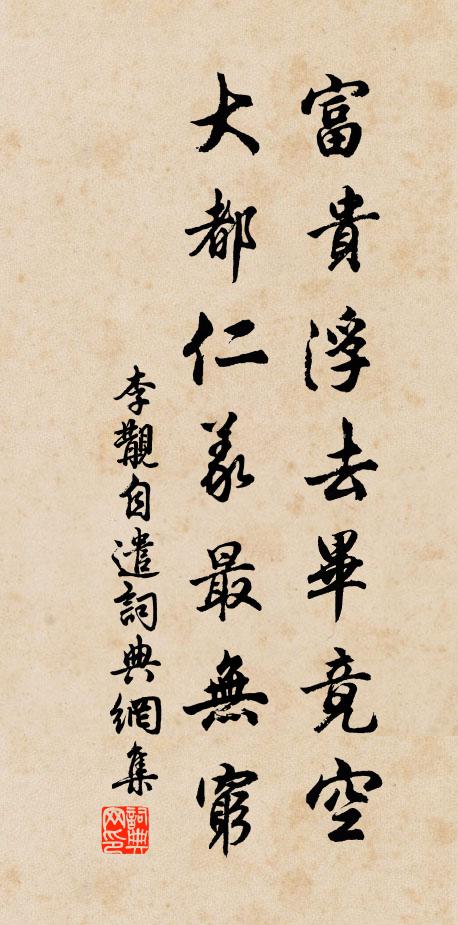 富貴浮去畢竟空
大都仁義最無窮
李覯自遣詞典網集
詞典网印